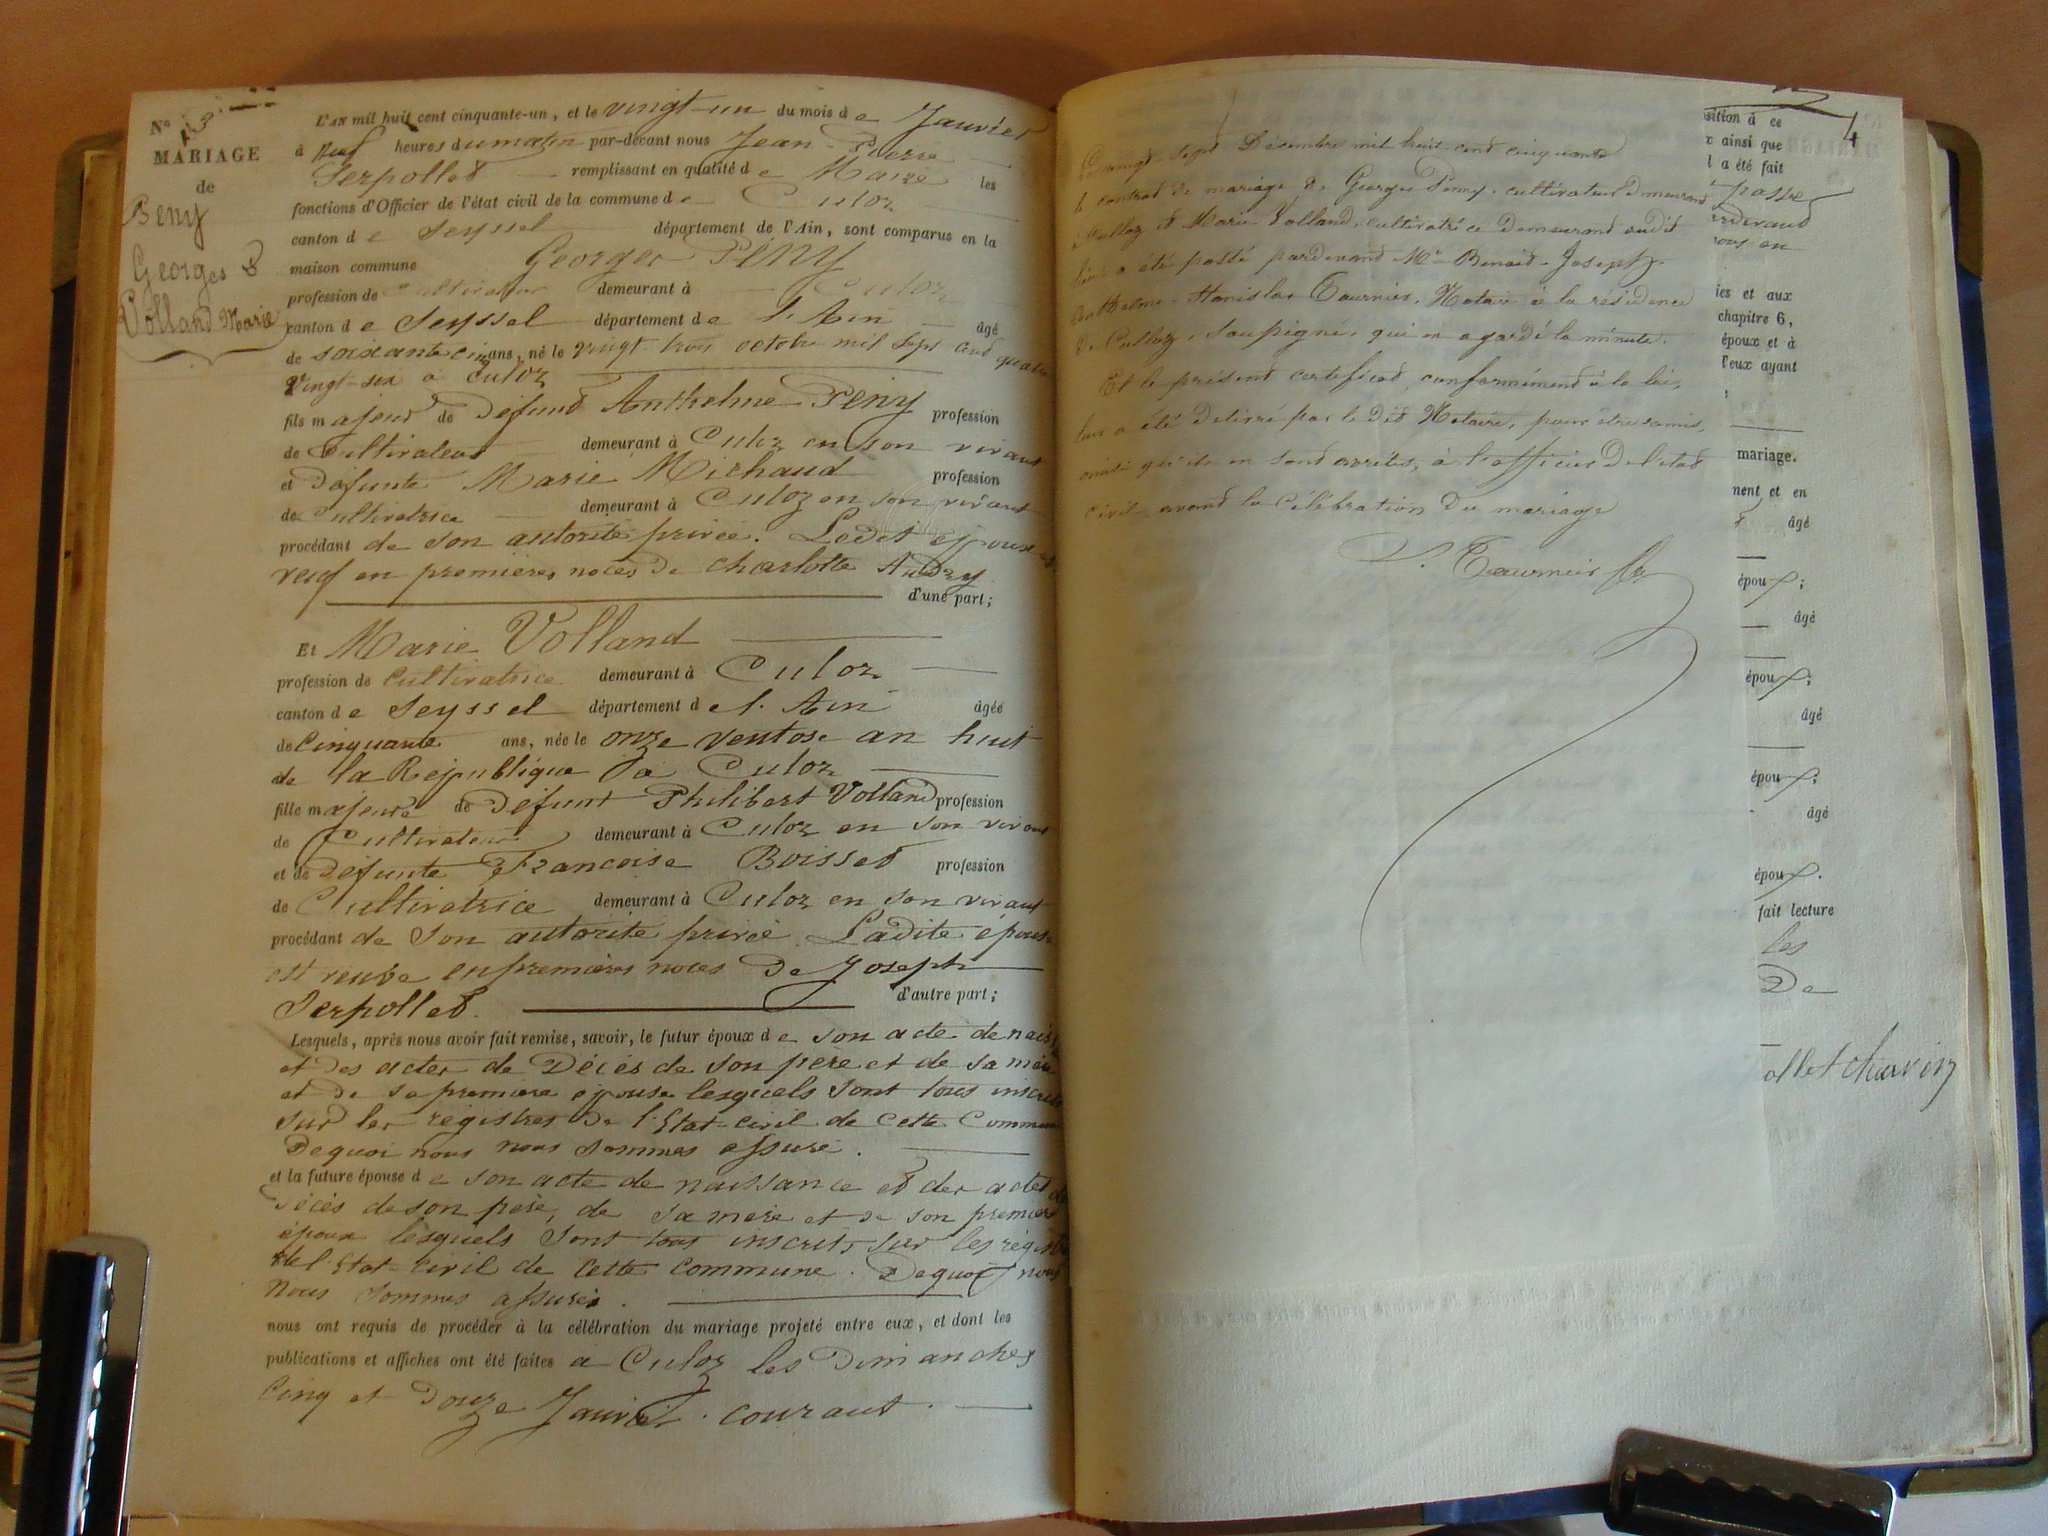 N° 3
MARIAGE
de
Peny
Georges &
Volland Marie
L'AN mil huit cent cinquante-un, et le vingt-un du mois de Janvier
à neuf heures du matin par-devant nous Jean-Pierre
Serpollet remplissant en qualité de Maire les
fonctions d'Officier de l'état civil de la commune de Culoz
canton de Seyssel département de l'Ain, sont comparus en la
maison commune Georges PENY
profession de Cultivateur demeurant à Culoz
canton de Seyssel département de l'Ain âgé
de soixante cinq ans, né le vingt-trois octobre mil sept cent quatre
vingt-six à Culoz
fils majeur de Défunt Anthelme Peny profession
de Cultivateur demeurant à Culoz en son vivant
et Défunte Marie Michaud profession
de Cultivatrice demeurant à Culoz en son vivant
procédant de son autorité privée. Ledit époux est
veuf en premières noces de Charlotte Audry
d'une part;
Et Marie Volland
profession de Cultivatrice demeurant à Culoz
canton de Seyssel département de l'Ain âgée
de Cinquante ans, née le onze ventose an huit
de la République à Culoz
fille majeure de Défunt Philibert Volland profession
de Cultivateur demeurant à Culoz en son vivant
et de Défunte Francoise Boisset profession
de Cultivatrice demeurant à Culoz en son vivant
procédant de son autorité privée. Ladite épouse
est veuve en premières noces de Joseph
Serpollet. d'autre part;
Lesquels, après nous avoir fait remise, savoir, le futur époux de son acte de naiss
et des actes de Décès de son père et de sa mère
et de sa première épouse lesquels sont tous inscrits
sur les régistres de l'Etat-civil de cette Commune
Dequoi nous nous sommes assuré.
et la future épouse de son acte de naissance et des actes de
décès de son père, de sa mère et de son premier
époux lesquels sont tous inscrits sur les régist
de l'Etat-civil de cette commune. Dequoi nous
nous sommes assurés.
nous ont requis de procéder à la célébration du mariage projeté entre eux, et dont les
publications et affiches ont été faites à Culoz les Dimanches
cinq et Douze Janvier courant.
Le vingt-sept Décembre mil huit-cent cinquante
le contrat de mariage de Georges Peny, cultivateur demeurant
à Culloz et Marie Volland, cultivatrice demeurant audit
lieu a été passé pardevant Me Benoit-Joseph-
Anthelme-Stanislas Tournier, Notaire à la résidence
de Culloz, soussigné, qui en a gardé la minute.
Et le présent certificat, conformément à la loi,
leur a été délivré par le dit Notaire, pour être remis,
ainsi qu'ils en sont avertis, à l'officier de l'état
civil avant la célébration du mariage
S. Tournier
4
sition à ce
x ainsi que
l a été fait
passé
rdevant
ies et aux
chapitre 6,
époux et à
l'eux ayant
;
mariage.
nent et en
âgé
époux;
âgé
époux;
âgé
époux;
âgé
époux.
fait lecture
les
De
ollet charvin